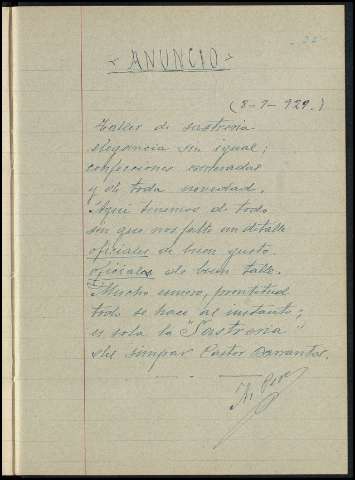 22
"ANUNCIO"
(8-9-929.)
Taller de sastreria
elegancia sin igual;
confecciones esmeradas
y de toda novedad.
Aqui tenemos de todo
sin que nos falte un detalle
oficiales de buen gusto
oficialas de buen talle.
Mucho esmero, prontitud
todo se hace al instante;
es sola la "Sastreria"
del simpar Castor Barrantes.